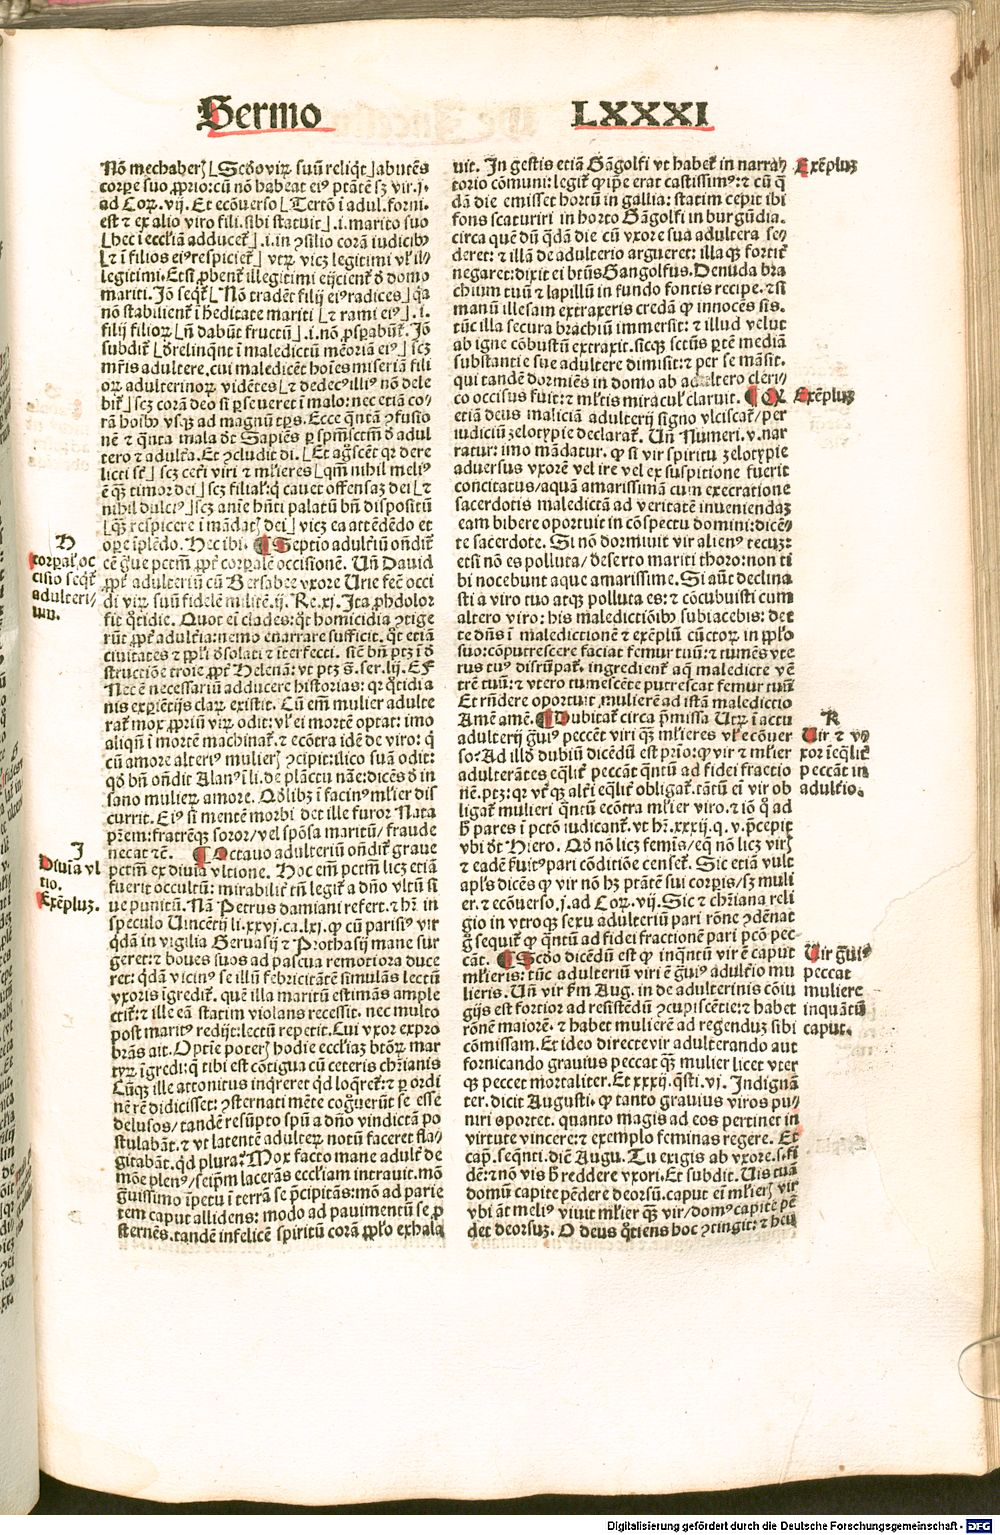 Sermo LXXXI
Nõ mechaberꝭ ⌊Scðo virꝝ suũ reliq̃t⌋ abutẽs
corpꝑe suo ꝓprio: cũ nõ habeat eiꝰ ptãtẽ sꝫ vir .j.
ad Coꝝ. vij. Et ecõuerso ⌊Tertõ ĩ adul. forni.
est ⁊ ex alio viro fili. sibi statuit⌋ .i. marito suo
⌊hec ĩ ecclĩam adducet̃⌋ .i. in ꝯsilio corã iudicibꝰ
⌊⁊ ĩ filios eiꝰ respiciet̃⌋ vtꝝ vicꝫ legitimi vl̃ il⸗
legitimi. Etsi ꝓbent̃ illegitimi eijcient̃ ð domo
mariti. Jõ seq̃t̃ ⌊Nõ tradẽt filij eiꝰ radices⌋ q̃a
nõ stabilient̃ ĩ heditate mariti ⌊⁊ rami eiꝰ⌋ .i.
filij filioꝝ ⌊ñ dabũt fructũ⌋ .i. nõ ꝓsꝑabũt̃. Jõ
subdit̃ ⌊ðrelinq̃nt ĩ maledictũ mẽoriã eiꝰ⌋ scꝫ
mr̃is adultere. cui maledicẽt hoĩes miseriã fili
oꝝ adulterinoꝝ vidẽtes ⌊⁊ dedecꝰ illiꝰ nõ dele
bit̃⌋ scꝫ corã deo si ꝑseueret ĩ malo: nec etiã co⸗
rã hoĩbꝰ vsqꝫ ad magnũ tp̃s. Ecce q̃nta ꝯfusio
nẽ ⁊ q̃nta mala ðt Sapiẽs ꝑ spm̃sctm̃ ð adul
tero ⁊ adult̃a. Et ꝯcludit di. ⌊Et ag̃scẽt qꝛ dere
licti st̃⌋ scꝫ cet̃i viri ⁊ ml̃ieres ⌊qm̃ nihil meliꝰ
ẽ q̃ꝫ timor dei⌋ scꝫ filial̃: q̃ cauet offensaꝫ dei ⌊⁊
nihil dulciꝰ⌋ scꝫ anĩe hñti palatũ bñ dispositũ
⌊q̃ꝫ respicere ĩ mãdatꝭ dei⌋ vicꝫ ea attẽdẽdo et
oꝑe ĩplẽdo. Hec ibi. ¶Septĩo adult̃iũ oñdit̃
cẽ g̃ue pctm̃ ꝓpt̃ corꝑalẽ occisionẽ. Uñ Dauid
ꝓpt̃ adulteriũ cũ Bersabee vxore Urie fec̃ occi
di virꝝ suũ fidelẽ militẽ .ij. Re. xj. Jta ꝓhdolor
fit q̃tidie. Quot ei clades: q̃t homicidia ꝯtige
rũt ꝓpt̃ adult̃ia: nemo enarrare sufficit. q̃t etiã
ciuitates ⁊ ppl̃i ðsolati ⁊ ĩterfecti. sic̃ bñ ptꝫ ĩ ð
structiõe troie ꝓpt̃ Helenã: vt ptꝫ s̃. ser. lij. E F
Nec ẽ necessariũ adducere historias: qꝛ q̃tidia
nis exꝑiẽtijs claꝝ existit. Cũ em̃ mulier adulte
rat̃ mox ꝓpriũ virꝝ odit: vl̃ ei mortẽ optat: imo
aliqñ ĩ mortẽ machinat̃. ⁊ ecõtra idẽ de viro: q̃
cũ amore alteriꝰ mulierꝭ ꝯcipit: ilico suã odit:
qð bñ oñdit Alanꝰ ĩ li. de plãctu nãe: dicẽs ð in
sano mulieꝝ amore. Qðlibꝫ ĩ facinꝰ ml̃ier dis
currit. Eiꝰ si mentẽ morbi det ille furor Nata
pr̃em: fratreqꝫ soror / vel spõsa maritũ / fraude
necat ⁊c̃. ¶Octauo adulteriũ oñdit̃ graue
pctm̃ ex diuia vltione. Hoc em̃ pctm̃ licꝫ etiã
fuerit occultũ: mirabilit̃ tñ legit̃ a dño vltũ si
ue punitũ. Nã Petrus damiani refert. ⁊ hr̃ in
speculo Uincẽtij li. xxvj. ca. lxj. ꝙ cũ parisiꝰ vir
q̃dã in vigilia Geruasij ⁊ Prothasij mane sur
geret: ⁊ boues suos ad pascua remotiora duce
ret: q̃dã vicinꝰ se illũ febricitãtẽ simulãs lectũ
vxoris ĩgredit̃. quẽ illa maritũ estimãs ample
ctit̃: ⁊ ille eã statim violans recessit. nec multo
post maritꝰ redijt: lectũ repetit. Cui vxor expro
brãs ait. Optĩe poterꝭ hodie eccliaꝫ btõꝝ mar
tyꝝ ĩgredi: q̃ tibi est cõtigua cũ ceteris chr̃ianis
Cũqꝫ ille attonitus inq̃reret q̃d loq̃ret̃: ⁊ ꝑ ordi
nẽ rẽ didicisset: ꝯsternati mẽte cog̃uerũt se esse
delusos / tandẽ resũpto spũ a dño vindictã po
stulabãt. ⁊ vt latentẽ adulteꝝ notũ faceret fla⸗
gitabãt. q̃d plura? Mox facto mane adult̃ de
mõe plenꝰ / seip̃m lacerãs ecclĩam intrauit. mõ
g̃uissimo ĩpetu ĩ terrã se p̃cipitãs: mõ ad parie
tem caput allidens: modo ad pauimentũ se ꝓ
sternẽs. tandẽ infelicẽ spiritũ corã ppl̃o exhala
D
corꝑal̃ oc
cisio seq̃t̃
adulteri⸗
um.
J
Diuia vl
tio.
Exẽpluꝫ.
uit. Jn gestis etiã Gãgolfi vt habet̃ in narra⸗
torio cõmuni: legit̃ ꝙ ip̃e erat castissimꝰ: ⁊ cũ q̃
dã die emisset hortũ in gallia: statim cepit ibi
fons scaturiri in horto Gãgolfi in burgũdia.
circa quẽ dũ q̃dã die cũ vxore sua adultera se⸗
deret: ⁊ illã de adulterio argueret: illaqꝫ fortit̃
negaret: dixit ei btũs Gangolfus. Denuda bra
chium tuũ ⁊ lapillũ in fundo fontis recipe. ⁊ si
manũ illesam extraxeris credã ꝙ innocẽs sis.
tũc illa secura brachiũ immersit: ⁊ illud velut
ab igne cõbustũ extraxit. sicqꝫ sectũs ꝑtẽ mediã
substantie sue adultere dimisit: ⁊ per se mãsit.
qui tandẽ dormiẽs in domo ab adultero cleri⸗
co occisus fuit: ⁊ ml̃tis miracul̃ claruit. ¶Qꝛ
etiã deus maliciã adulterij signo vlciscat̃ / per
iudiciũ zelotypie declarat̃. Uñ Numeri. v. nar
ratur: imo mãdatur. ꝙ si vir spiritu zelotypie
aduersus vxorẽ vel ire vel ex suspitione fuerit
concitatus / aquã amarissimã cum execratione
sacerdotis maledictã ad veritatẽ inueniendaꝫ
eam bibere oportuit in cõspectu domini: dicẽ⸗
te sacerdote. Si nõ dormiuit vir alienꝰ tecuꝫ:
etsi nõ es polluta / deserto mariti thoro: non ti
bi nocebunt aque amarissime. Si aũt declina
sti a viro tuo atqꝫ polluta es: ⁊ cõcubuisti cum
altero viro: his maledictiõibꝰ subiacebis: det
te dñs ĩ maledictionẽ ⁊ exẽplũ cũctoꝝ in ppl̃o
suo: cõputrescere faciat femur tuũ: ⁊ tumẽs vte
rus tuꝰ disrũpat̃. ingredient̃ aq̃ maledicte vẽ
trẽ tuũ: ⁊ vtero tumescẽte putrescat femur tuũ
Et rñdere oportuit mulierẽ ad istã maledictio
Amẽ amẽ. ¶Dubitat̃ circa p̃missa Utꝝ ĩ actu
adulterij g̃uiꝰ peccẽt viri q̃ꝫ ml̃ieres vl̃ ecõuer
so: Ad illð dubiũ dicẽdũ est prĩo: ꝙ vir ⁊ ml̃ier
adulterãtes eq̃lit̃ peccãt q̃ntũ ad fidei fractio
nẽ. ptꝫ: qꝛ vt̃qꝫ alt̃i eq̃lit̃ obligat̃. tãtũ ei vir ob
ligat̃ mulieri q̃ntũ ecõtra ml̃ier viro. ⁊ iõ q̃ ad
h̃ pares ĩ pctõ iudicant̃. vt hr̃. xxxij. q. v. p̃cepit
vbi ðt Hiero. Qð nõ licꝫ femĩs / eq̃ nõ licꝫ virꝭ
⁊ eadẽ ẜuitꝰ pari cõditiõe censet̃. Sic etiã vult
apl̃s dicẽs ꝙ vir nõ hꝫ ptãtẽ sui corꝑis / sꝫ muli
er. ⁊ ecõuerso. j. ad Coꝝ. vij. Sic ⁊ chr̃iana reli
gio in vtroqꝫ sexu adulteriũ pari rõne ꝯdẽnat
g̃ sequit̃ ꝙ q̃ntũ ad fidei fractionẽ pari pctõ pec⸗
cãt. ¶Scðo dicẽdũ est ꝙ inq̃ntũ vir ẽ caput
ml̃ieris: tũc adulteriũ viri ẽ g̃uiꝰ adult̃io mu
lieris. Uñ vir ẜm Aug. in de adulterinis cõiu
gijs est fortior ad resistẽdũ ꝯcupiscẽtie: ⁊ habet
rõnẽ maiorẽ. ⁊ habet mulierẽ ad regenduꝫ sibi
cõmissam. Et ideo directe vir adulterando aut
fornicando grauius peccat q̃ꝫ mulier licet vter
qꝫ peccet mortaliter. Et xxxij. q̃sti. vj. Jndignã
ter. dicit Augusti. ꝙ tanto grauius viros pu⸗
niri oportet. quanto magis ad eos pertinet in
virtute vincere: ⁊ exemplo feminas regere. Et
cap̃. seq̃nti. diẽ Augu. Tu exigis ab vxore. s. fi
dẽ: ⁊ nõ vis h̃ reddere vxori. Et subdit. Uis tuã
domũ capite pẽdere deorsũ. caput ei ml̃ierꝭ vir
vbi aũt meliꝰ viuit ml̃ier q̃ꝫ vir / domꝰ capite pẽ
det deorsuꝫ. O deus q̃tiens hoc ꝯtingit: ⁊ heu
Exẽpluꝫ
Exẽpluꝫ
K
Uir ⁊ vx
xor ĩ eq̃lit̃
peccãt in
adult̃io.
Uir g̃uiꝰ
peccat
muliere
inquãtũ
caput.
Digitalisierung gefördert durch die Deutsche Forschungsgemeinschaft - DFG